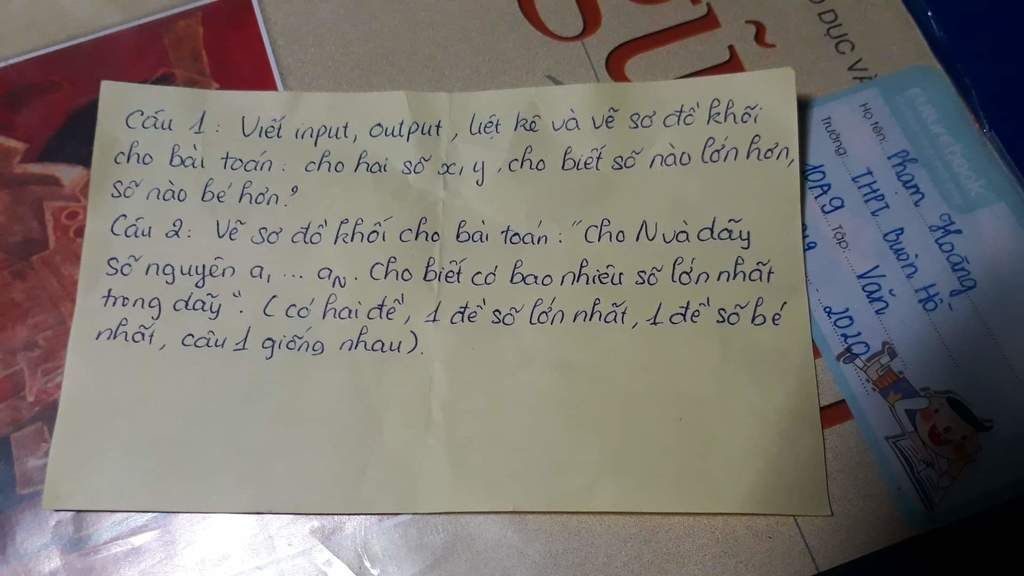 Câu 1: Viết input, output, liệt kê và vẽ sơ đồ khối
cho bài toán: cho hai số x, y, cho biết số nào lớn hơn,
số nào bé hơn?
Câu 2: Vẽ sơ đồ khối cho bài toán: "Cho N và dãy
số nguyên a₁ ... aN. Cho biết có bao nhiêu số lớn nhất
trong dãy". (có hai đề, 1 đề số lớn nhất, 1 đề số bé
nhất, câu 1 giống nhau).
GỮ
DỤC VÀ
Họ tên: Phạm Hoàng
Trường: THPT Buôn Hồ
10A9 Tập: Văn
2020